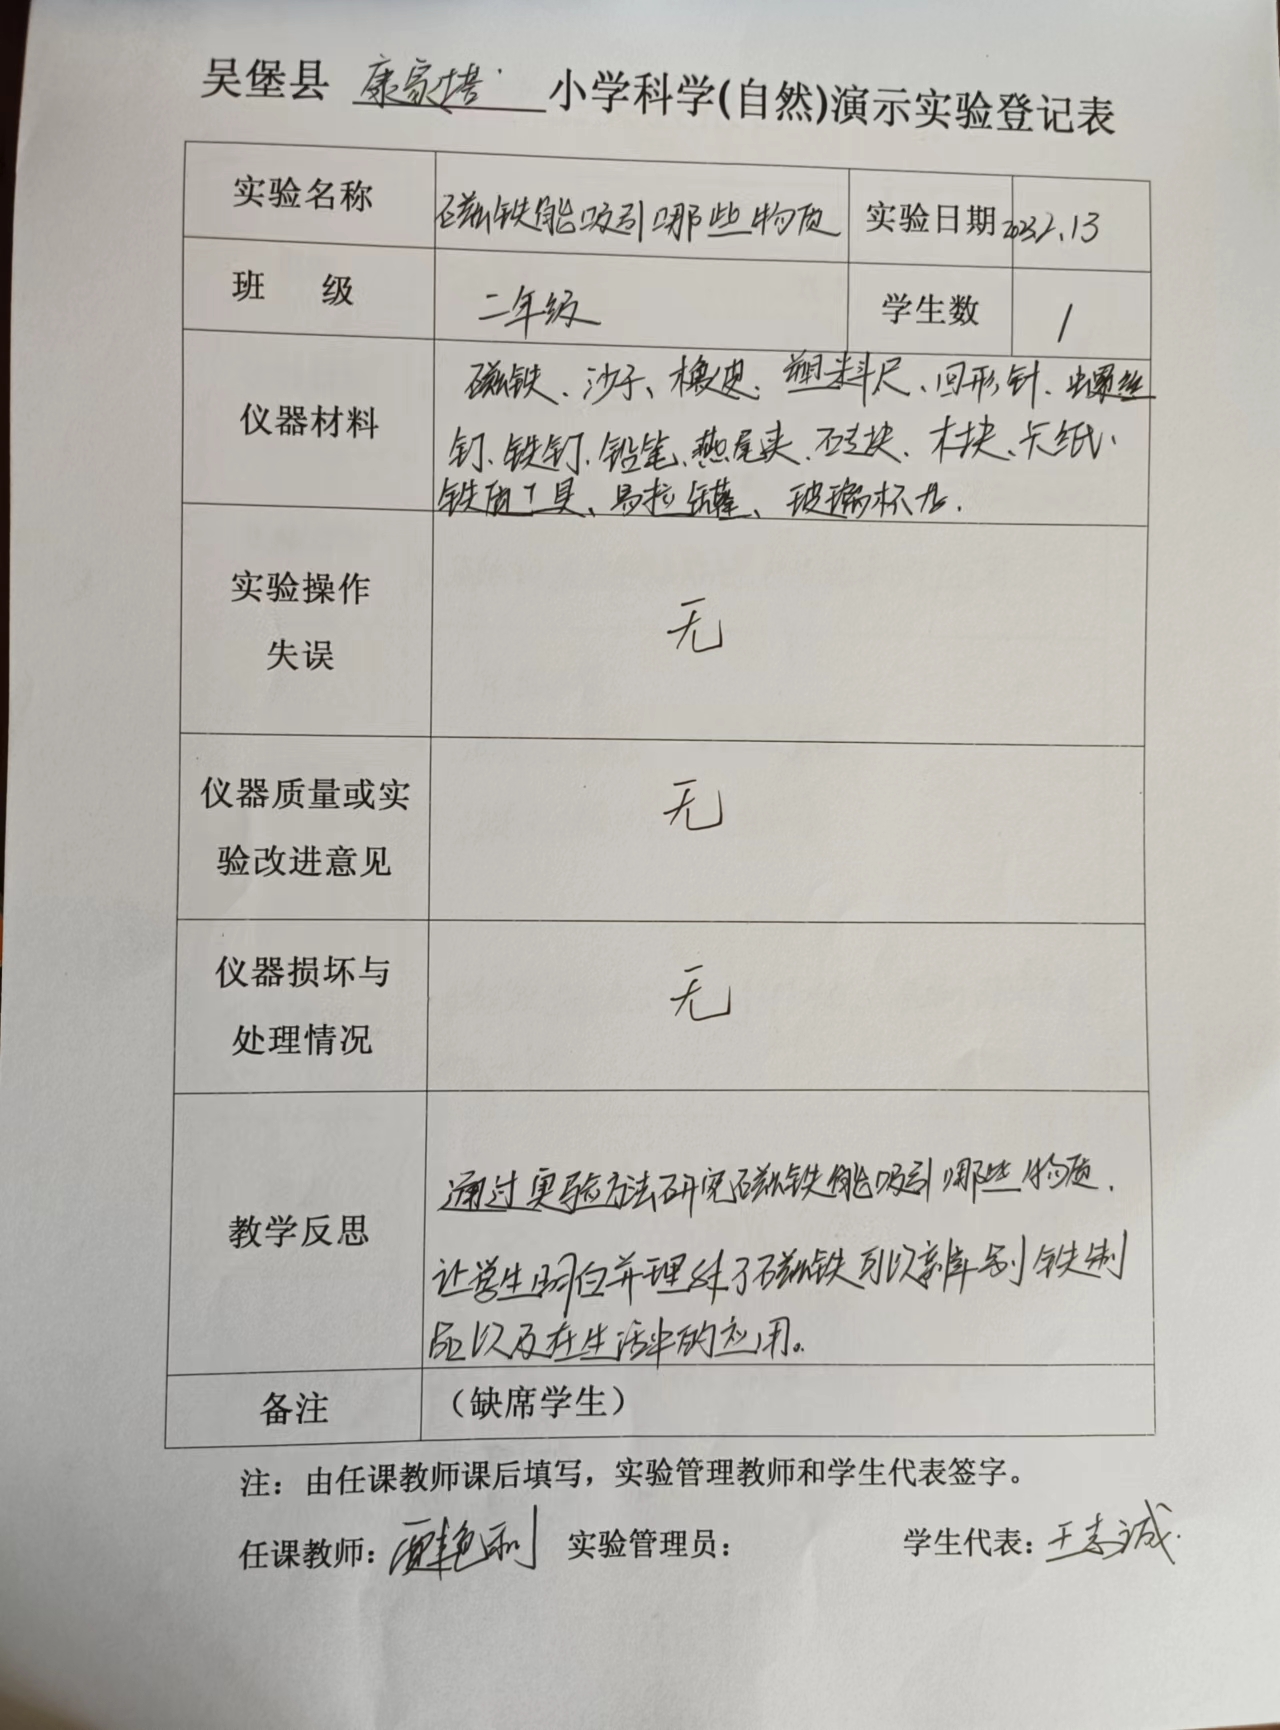 吴堡县 康家塔 小学科学(自然)演示实验登记表
实验名称 磁铁能吸引哪些物质 实验日期
班 级 二年级 学生数 1
仪器材料
磁铁、沙子、橡皮、塑料尺、回形针、螺丝
钉、铁钉、铅笔、燕尾夹、石块、木块、卡纸、
工具、易拉罐、玻璃杯
实验操作
失误
无
仪器质量或实
验改进意见
无
仪器损坏与
处理情况
无
教学反思
通过实验方法研究磁铁能吸引哪些物质,
让学生明白并理解了磁铁可以亲库别铁制
品以及在生活中的应用。
备注 （缺席学生）
注：由任课教师课后填写，实验管理教师和学生代表签字。
任课教师： 实验管理员： 学生代表：